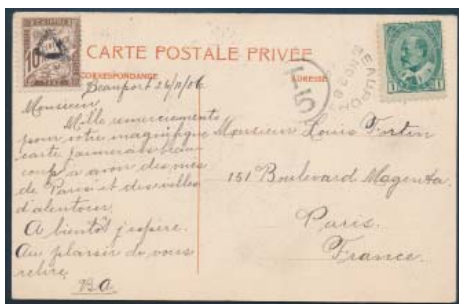 CARTE POSTALE PRIVÉE
CORRESPONDANCE
ADRESSE
10
1 1
T 5
BEAUPORT
Beauport 26/11/06
Monsieur
Mille remerciements
pour votre magnifique
carte j'aimerais beau
coup a avoir des vues
de Paris et des villes
d'alentour
A bientôt j'espère.
Au plaisir de vous
relire
B.A.
Monsieur Louis Fortin
151 Boulevard Magenta.
Paris.
France.